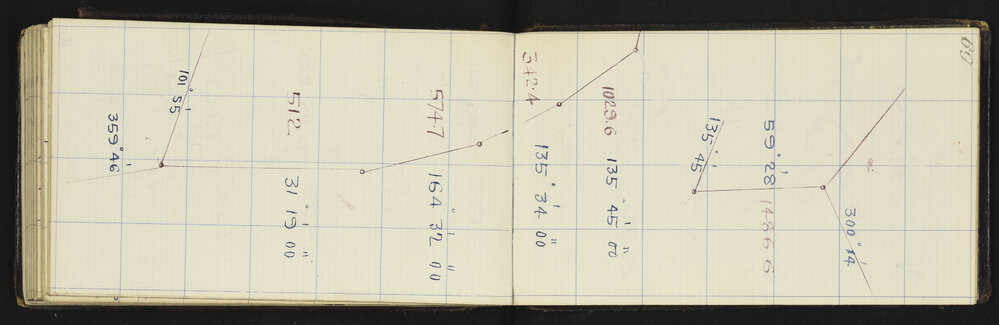 69
300° 14'
59° 28' 1486 6
135° 45'
1029.6 135° 45' 00"
342.4 135° 34' 00"
574.7 164° 32' 00"
512 31° 19' 00"
101° 55'
359° 46'